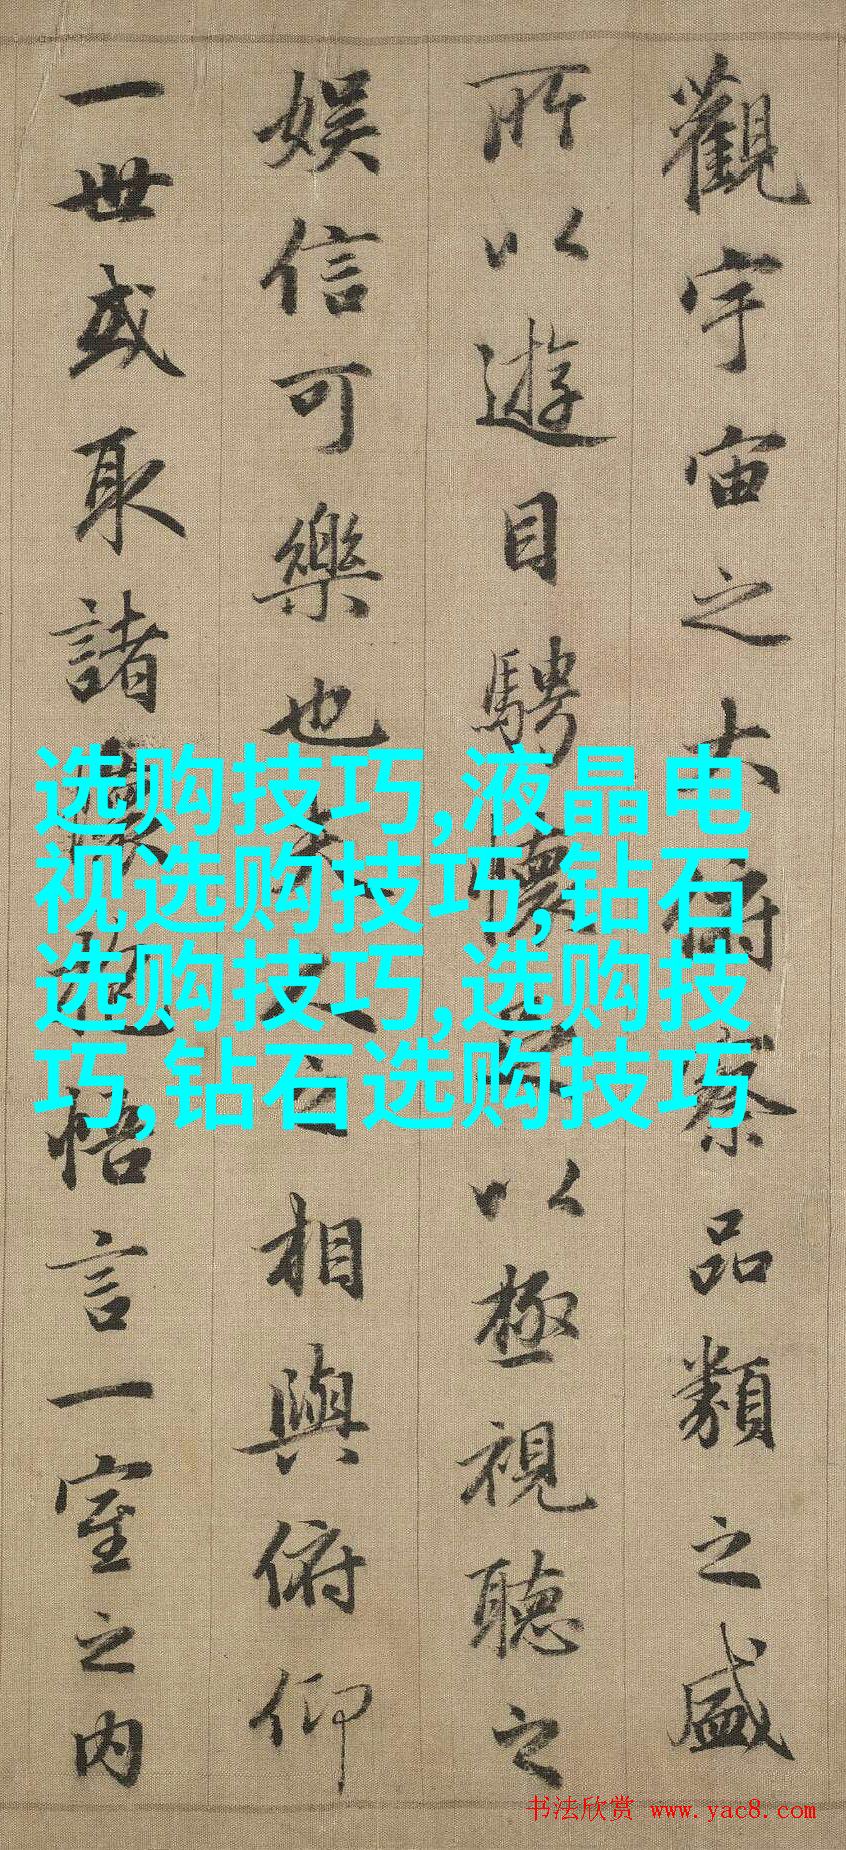 觀宇宙之大俯察品類之盛
所以遊目騁懷足以極視聽之
娱信可樂也夫人之相與俯仰
一世或取諸懷抱悟言一室之内
选购技巧,液晶电
视选购技巧,钻石
选购技巧,选购技
巧,钻石选购技巧
书法欣赏 www.yac8.com